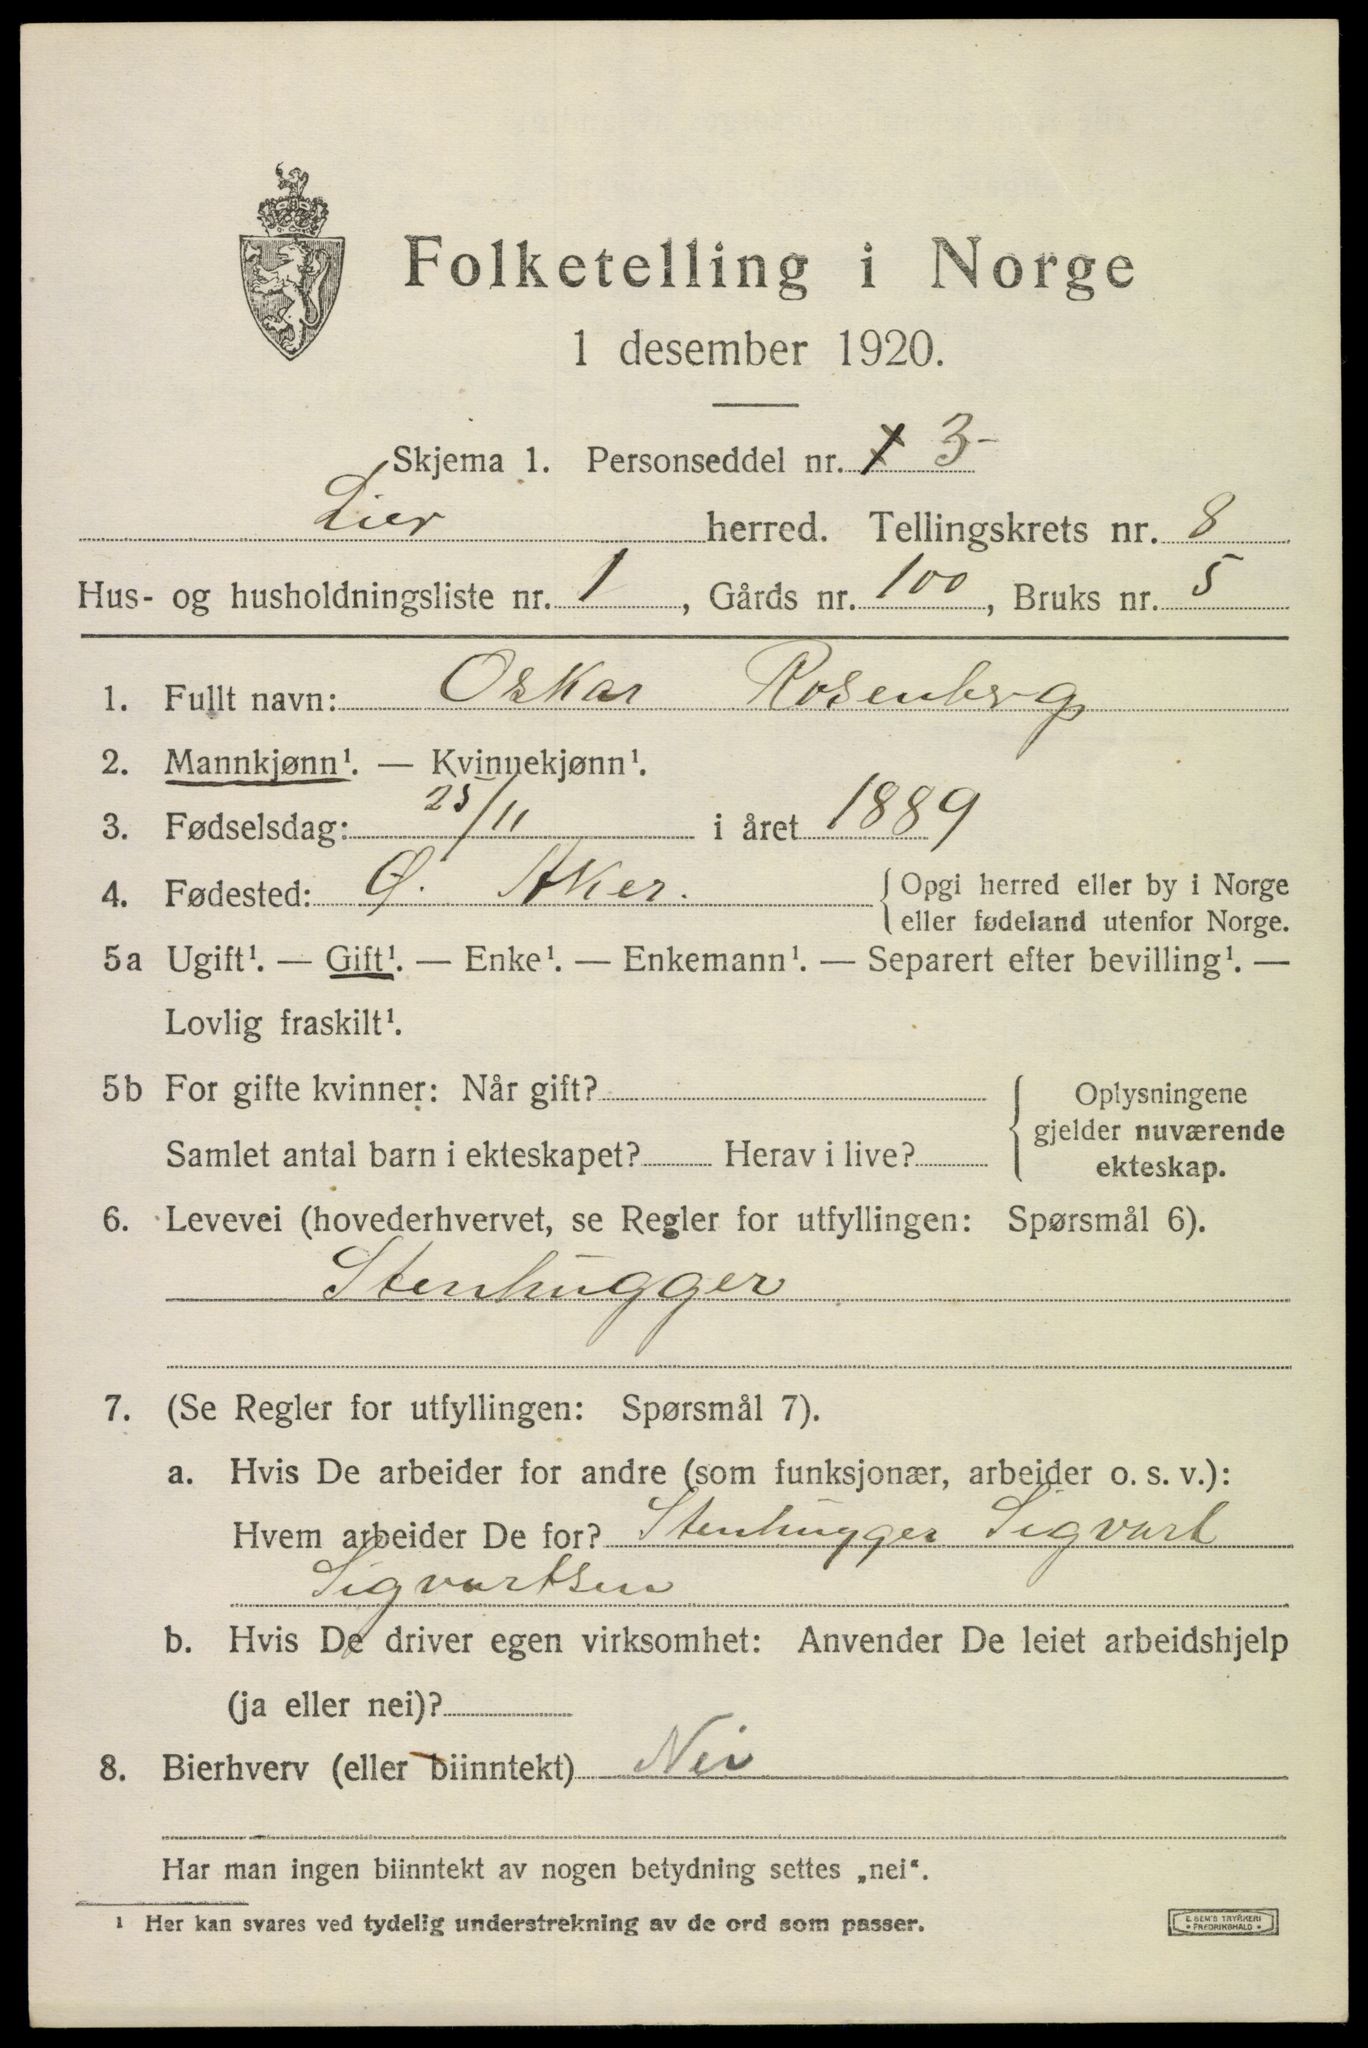 Folketelling i Norge
1 desember 1920.
Skjema 1. Personseddel nr. 3
Lier herred. Tellingskrets nr. 8
Hus- og husholdningsliste nr. 1, Gårds nr. 100, Bruks nr. 5
1. Fullt navn: Oskar Rosenberg
2. Mannkjønn¹. — Kvinnekjønn¹.
3. Fødselsdag: 25/11 i året 1889
4. Fødested: Ø. Aker. { Opgi herred eller by i Norge
eller fødeland utenfor Norge.
5a Ugift¹. — Gift¹. — Enke¹. — Enkemann¹. — Separert efter bevilling¹. —
Lovlig fraskilt¹.
5b For gifte kvinner: Når gift? { Oplysningene
gjelder nuværende
Samlet antal barn i ekteskapet? Herav i live? ekteskap.
6. Levevei (hovederhvervet, se Regler for utfyllingen: Spørsmål 6).
Stenhugger
7. (Se Regler for utfyllingen: Spørsmål 7).
a. Hvis De arbeider for andre (som funksjonær, arbeider o. s. v.):
Hvem arbeider De for? Stenhugger Sigvart
Sigvartsen
b. Hvis De driver egen virksomhet: Anvender De leiet arbeidshjelp
(ja eller nei)?
8. Bierhverv (eller biinntekt) Nei
Har man ingen biinntekt av nogen betydning settes „nei“.
¹ Her kan svares ved tydelig understrekning av de ord som passer.
E. SEM'S TRYKKERI
• FREDRIKSHALD •